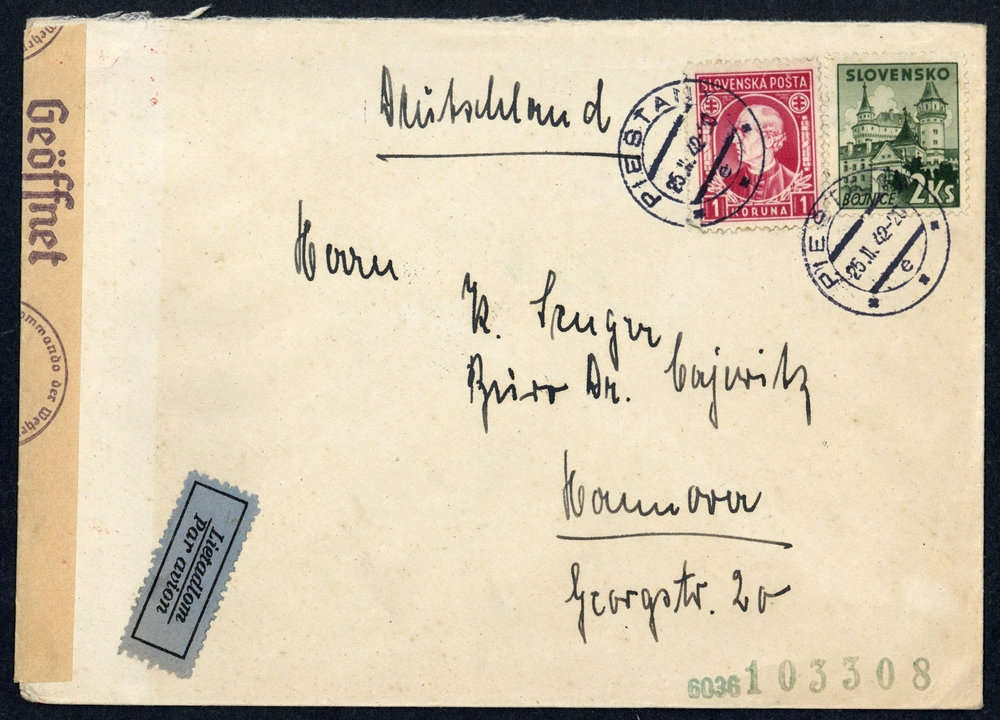 Geöffnet
ommando der Wehr
Lietadlom
Par avion
Deutschland
SLOVENSKÁ POŠTA
1 KORUNA 1
SLOVENSKO
BOJNICE 2Ks
PIEŠŤAN
25.II.42
e
PIE
25.II.42-20
e
Herrn
K.
Büro Dr.
Hannover
Georgstr. 20
6036 103308